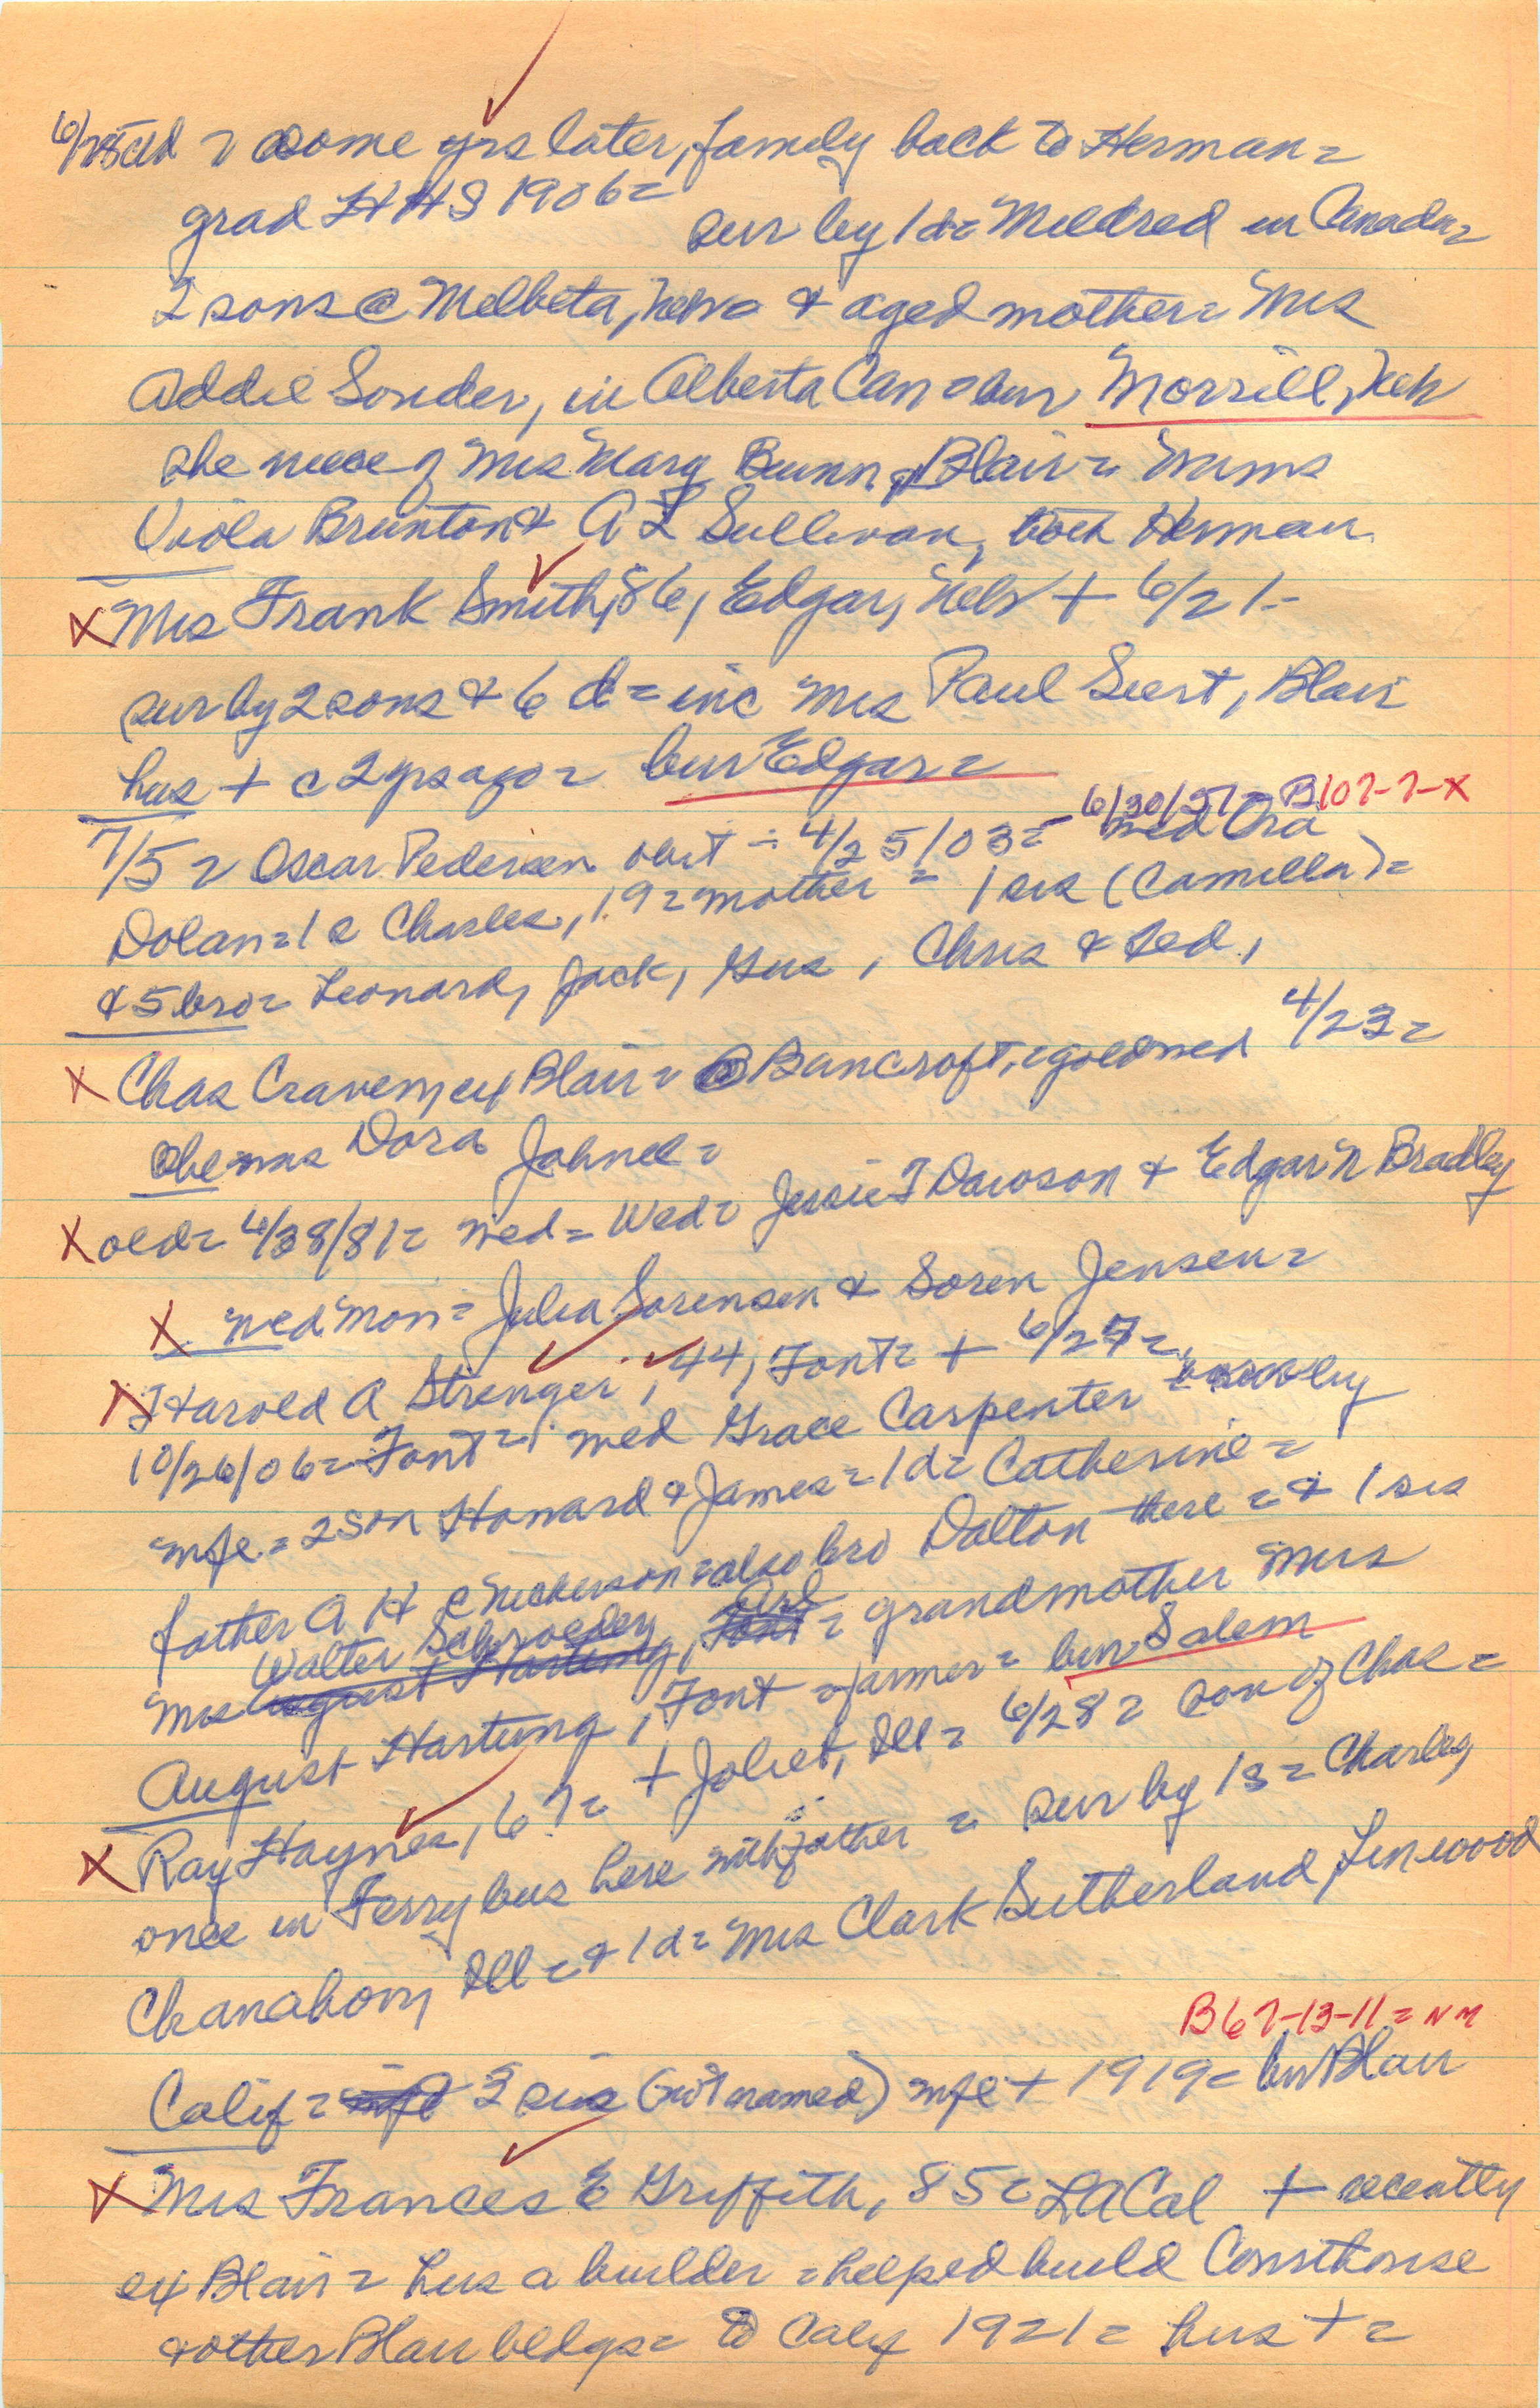 some yrs later, family back to Herman =
grad HHS 1906 =
sur by 1 d = Mildred in Canada =
2 sons @ Melbeta, Nebr & aged mother = Mrs
Addie Souder, in Alberta Can = bur Morrill, Neb
she niece of Mrs Mary Bunn, Blair = Mmes
Viola Brunton & A L Sullivan, both Herman
X Mrs Frank Smith, 86, Edgar, Nebr + 6/21 -
sur by 2 sons & 6 d = inc Mrs Paul Siert, Blair
hus + c 2 yrs ago = bur Edgar =
6/30/51 = B107-7-X
7/5 = Oscar Pedersen obit - 4/25/03 = med Ora
Dolan = 1 s Charles, 19 = mother = 1 sis (Camilla) =
& 5 bro = Leonard, Jack, Gus, Chris & Ted,
X Chas Craven, ex Blair = @ Bancroft, = gold wed 4/23 =
she was Dora Jahnel =
X old = 4/28/81 = wed = Wed = Jessie T Dawson & Edgar N Bradley
X wed Mon = Julia Sorensen & Soren Jensen =
X Harold A Strenger, 44, Font = + 6/27 =
10/26/06 = Font = med Grace Carpenter by
wfe = 2 son Howard & James = 1 d = Catherine =
father A H @ Nickerson = also bro Dalton there = & 1 sis
Walter Schroeder, Arl
Mrs August Hartung, Font = grandmother Mrs
August Hartung, Font = farmer = bur Salem
X Ray Haynes, 67 = + Joliet, Ill = 6/28 = son of Chas =
once in Ferry bus here with father = sur by 1 s = Charles,
Chanahon, Ill = & 1 d = Mrs Clark Sutherland, Linwood
B67-13-11 = NM
Calif = 2 sis (not named) wfe + 1919 = bur Blair
X Mrs Frances E Griffith, 85 = LA Cal + recently
ex Blair = hus a builder = helped build Courthouse
& other Blair bldgs = to Calif 1921 = hus + =